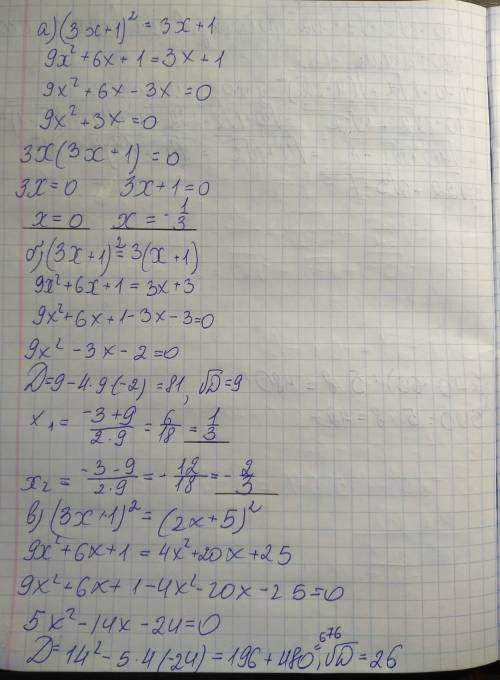 а) (3x+1)² = 3x+1
9x²+6x+1=3x+1
9x²+6x-3x=0
9x²+3x=0
3x(3x+1)=0
3x=0 3x+1=0
x=0 x=-1/3
б) (3x+1)²=3(x+1)
9x²+6x+1=3x+3
9x²+6x+1-3x-3=0
9x²-3x-2=0
D=9-4·9(-2)=81, √D=9
x₁=(-3+9)/(2·9)=6/18=1/3
x₂=(-3-9)/(2·9)=-12/18=-2/3
в) (3x+1)²=(2x+5)²
9x²+6x+1=4x²+20x+25
9x²+6x+1-4x²-20x-25=0
5x²-14x-24=0
D=14²-5·4(-24)=196+480=676, √D=26